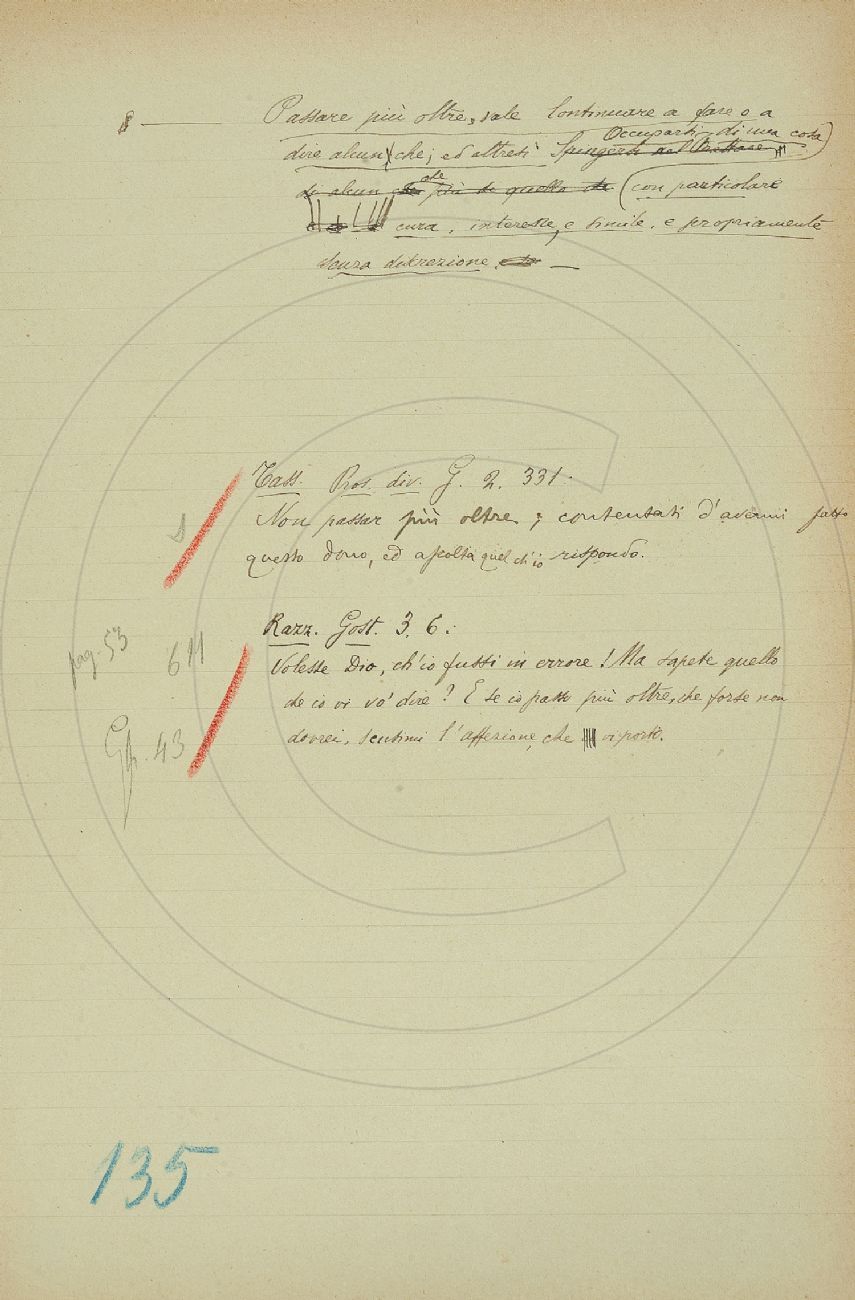 § ———
Passare più oltre, vale Continuare a fare o a
Occuparsi di una cosa
dire alcun che; ed altresì Spingersi nel trattare
di alcun che più di quello che (con particolare
cura, interesse, e simile, e propriamente
senza discrezione. —
Tass. Pros. div. G. 2. 331.
Non passar più oltre; contentati d'avermi fatto
questo dono, ed ascolta quel ch'io rispondo.
Razz. Gost. 3. 6.:
Volesse Dio, ch'io fussi in errore! Ma sapete quello
che io vi vo' dire? E se io passo più oltre, che forse non
dovrei, scusimi l'affezione, che vi porto.
pag. 53
611
43
135